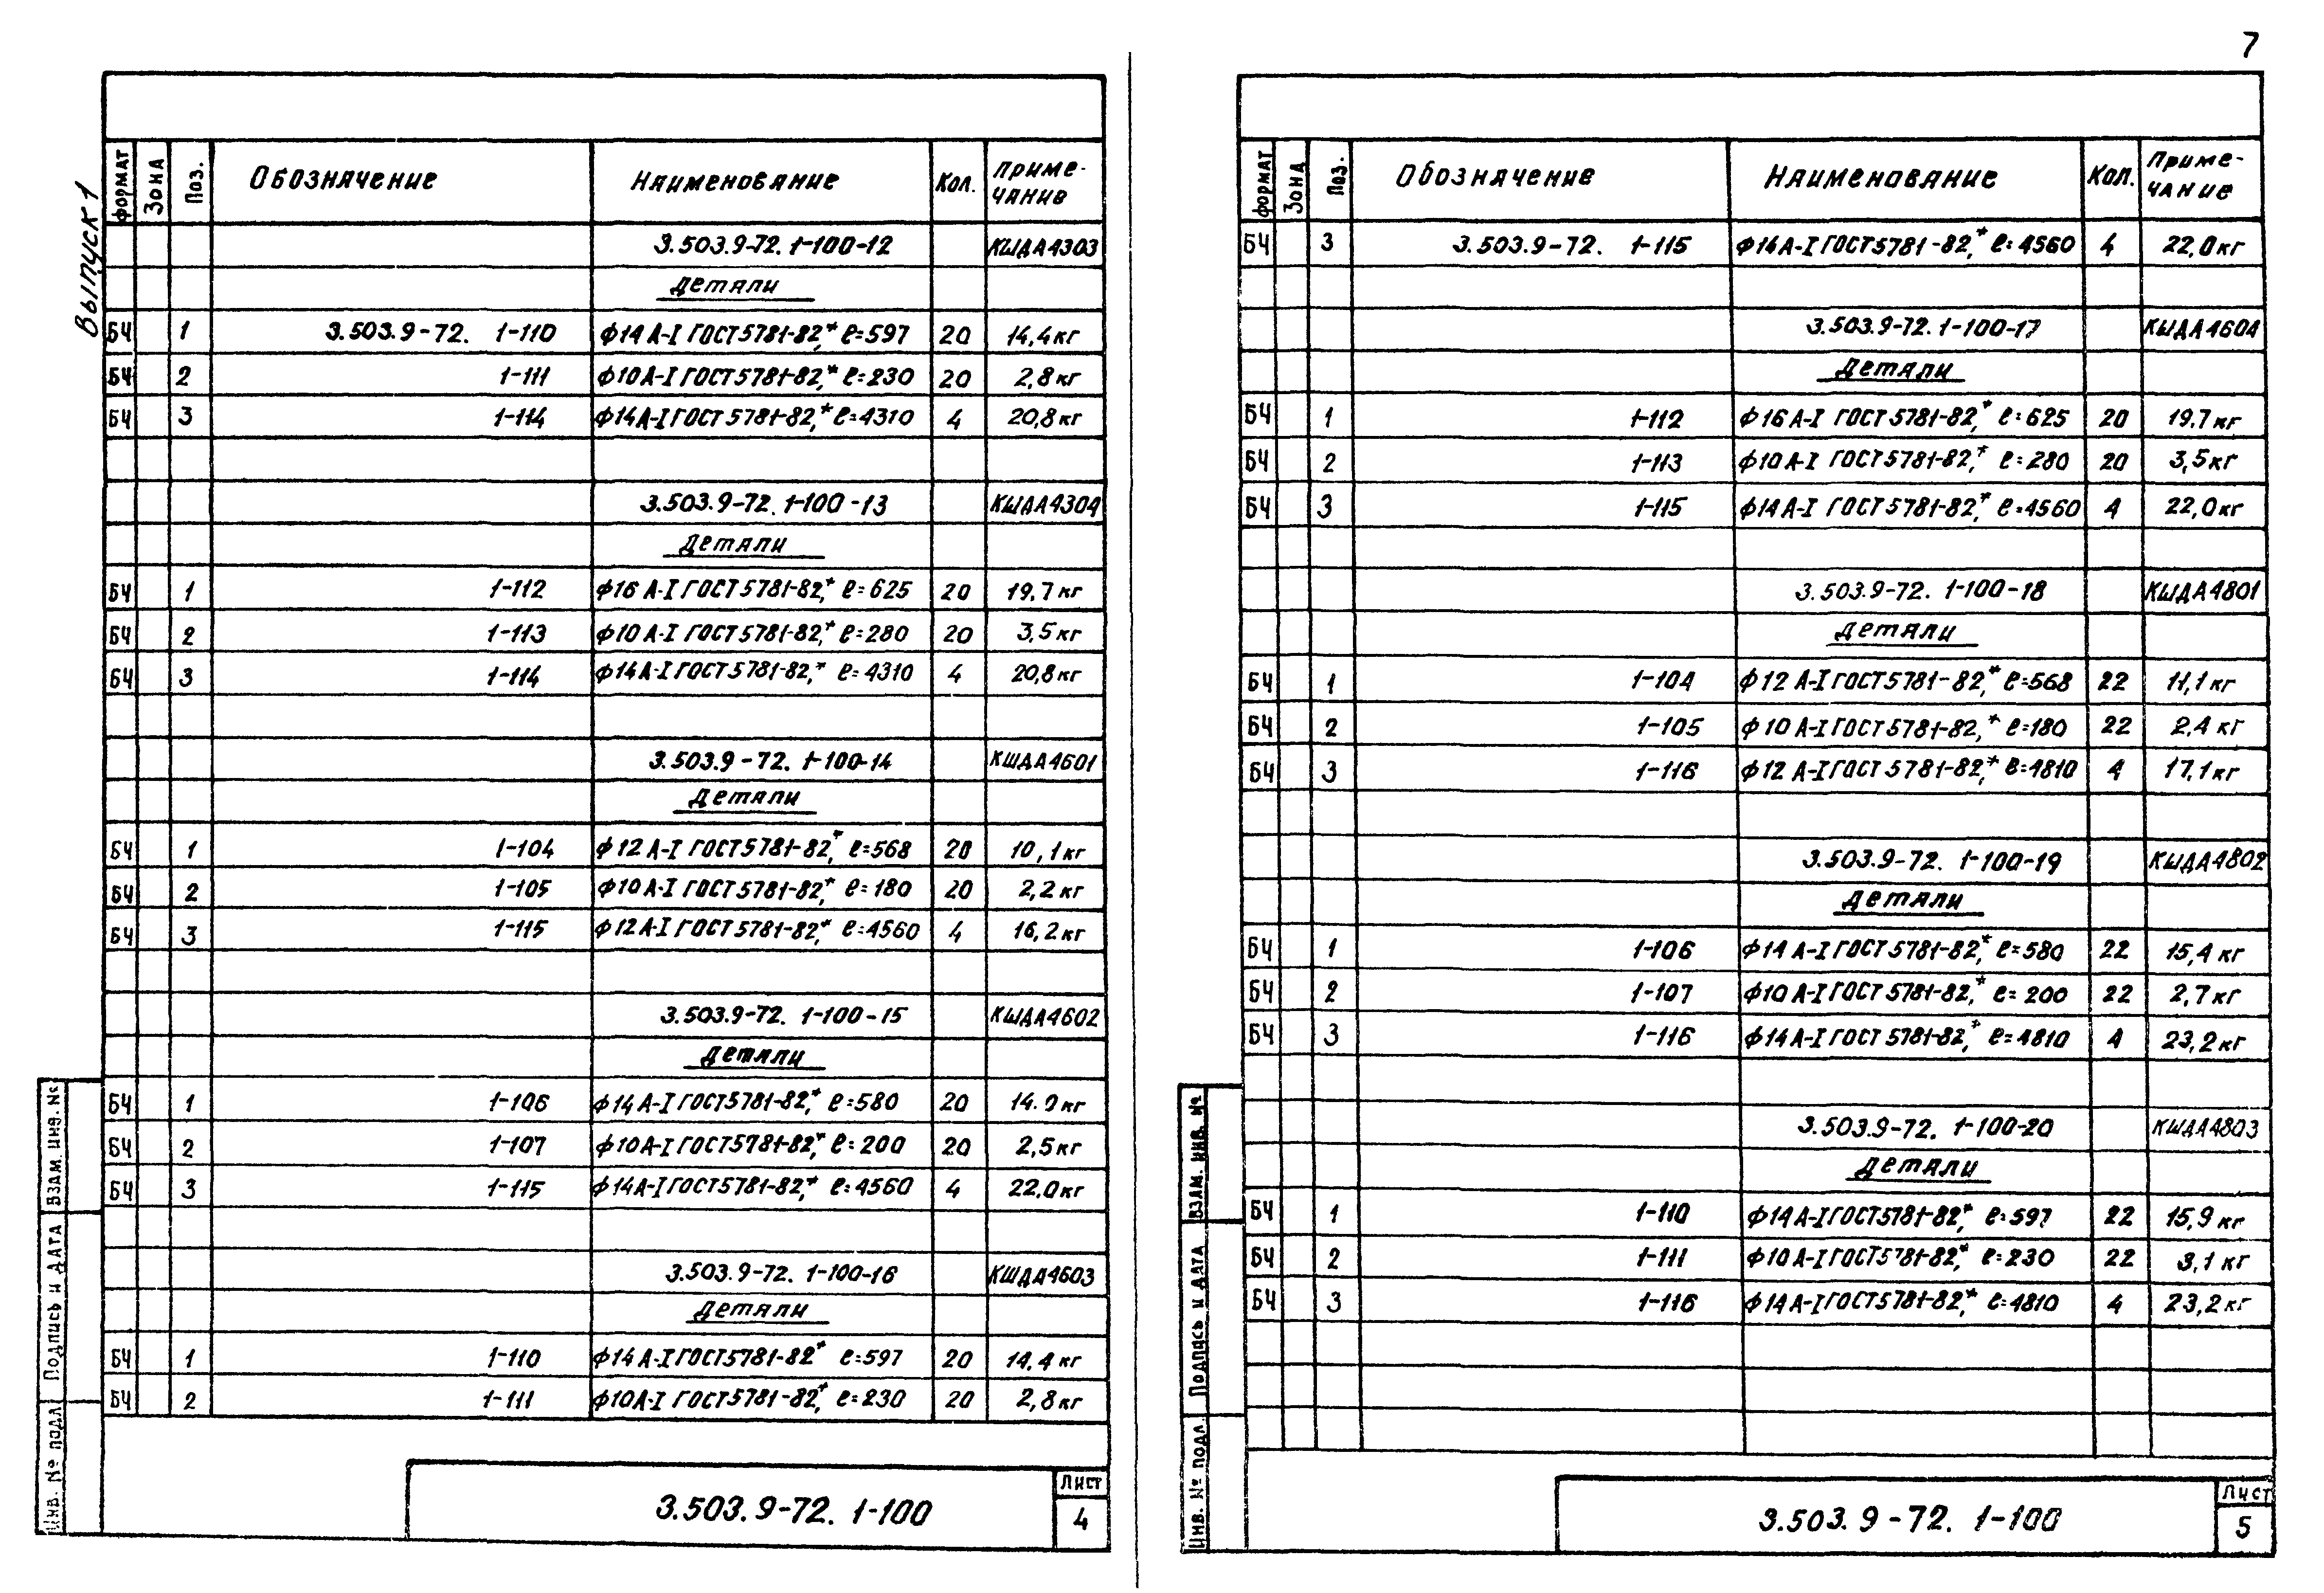 7
Выпуск 1
Формат Зона Поз. Обозначение Наименование Кол. Примечание
3.503.9-72. 1-100-12 КШДА4303
Детали
БЧ 1 3.503.9-72. 1-110 Ф14 А-I ГОСТ 5781-82,* ℓ=597 20 14,4кг
БЧ 2 1-111 Ф10 А-I ГОСТ 5781-82,* ℓ=230 20 2,8кг
БЧ 3 1-114 Ф14 А-I ГОСТ 5781-82,* ℓ=4310 4 20,8кг
3.503.9-72. 1-100-13 КШДА4304
Детали
БЧ 1 1-112 Ф16 А-I ГОСТ 5781-82,* ℓ=625 20 19,7кг
БЧ 2 1-113 Ф10 А-I ГОСТ 5781-82,* ℓ=280 20 3,5кг
БЧ 3 1-114 Ф14 А-I ГОСТ 5781-82,* ℓ=4310 4 20,8кг
3.503.9-72. 1-100-14 КШДА4601
Детали
БЧ 1 1-104 Ф12 А-I ГОСТ 5781-82,* ℓ=568 20 10,1кг
БЧ 2 1-105 Ф10 А-I ГОСТ 5781-82,* ℓ=180 20 2,2кг
БЧ 3 1-115 Ф12 А-I ГОСТ 5781-82,* ℓ=4560 4 16,2кг
3.503.9-72. 1-100-15 КШДА4602
Детали
БЧ 1 1-106 Ф14 А-I ГОСТ 5781-82,* ℓ=580 20 14.0кг
БЧ 2 1-107 Ф10 А-I ГОСТ 5781-82,* ℓ=200 20 2,5кг
БЧ 3 1-115 Ф14 А-I ГОСТ 5781-82,* ℓ=4560 4 22,0кг
3.503.9-72. 1-100-16 КШДА4603
Детали
БЧ 1 1-110 Ф14 А-I ГОСТ 5781-82* ℓ=597 20 14,4кг
БЧ 2 1-111 Ф10 А-I ГОСТ 5781-82,* ℓ=230 20 2,8кг
Инв. № подл. Подпись и дата Взам. инв. №
3.503.9-72. 1-100
Лист
4
Формат Зона Поз. Обозначение Наименование Кол. Примечание
БЧ 3 3.503.9-72. 1-115 Ф14 А-I ГОСТ 5781-82,* ℓ=4560 4 22,0кг
3.503.9-72. 1-100-17 КШДА4604
Детали
БЧ 1 1-112 Ф16 А-I ГОСТ 5781-82,* ℓ=625 20 19.7кг
БЧ 2 1-113 Ф10 А-I ГОСТ 5781-82,* ℓ=280 20 3,5кг
БЧ 3 1-115 Ф14 А-I ГОСТ 5781-82,* ℓ=4560 4 22,0кг
3.503.9-72. 1-100-18 КШДА4801
Детали
БЧ 1 1-104 Ф12 А-I ГОСТ 5781-82,* ℓ=568 22 11,1кг
БЧ 2 1-105 Ф10 А-I ГОСТ 5781-82,* ℓ=180 22 2,4кг
БЧ 3 1-116 Ф12 А-I ГОСТ 5781-82,* ℓ=4810 4 17,1кг
3.503.9-72. 1-100-19 КШДА4802
Детали
БЧ 1 1-106 Ф14 А-I ГОСТ 5781-82,* ℓ=580 22 15,4кг
БЧ 2 1-107 Ф10 А-I ГОСТ 5781-82,* ℓ=200 22 2,7кг
БЧ 3 1-116 Ф14 А-I ГОСТ 5781-82,* ℓ=4810 4 23,2кг
3.503.9-72. 1-100-20 КШДА4803
Детали
БЧ 1 1-110 Ф14 А-I ГОСТ 5781-82,* ℓ=597 22 15,9кг
БЧ 2 1-111 Ф10 А-I ГОСТ 5781-82,* ℓ=230 22 3,1кг
БЧ 3 1-116 Ф14 А-I ГОСТ 5781-82,* ℓ=4810 4 23,2кг
Инв. № подл. Подпись и дата Взам. инв. №
3.503.9-72. 1-100
Лист
5